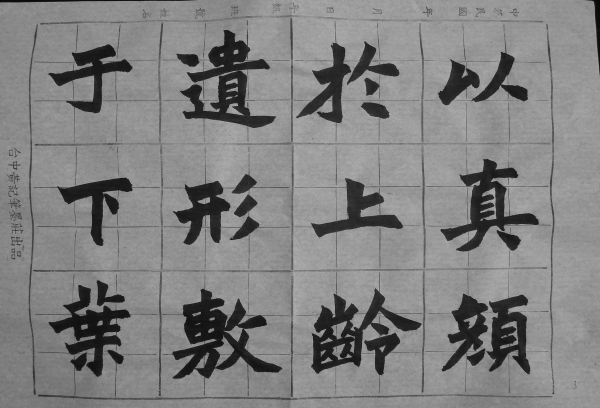 中華民國 年 月 日 年級 班 號 姓名
以真顏
於上齡
遺形敷
于下葉
台中黃記筆墨莊出品